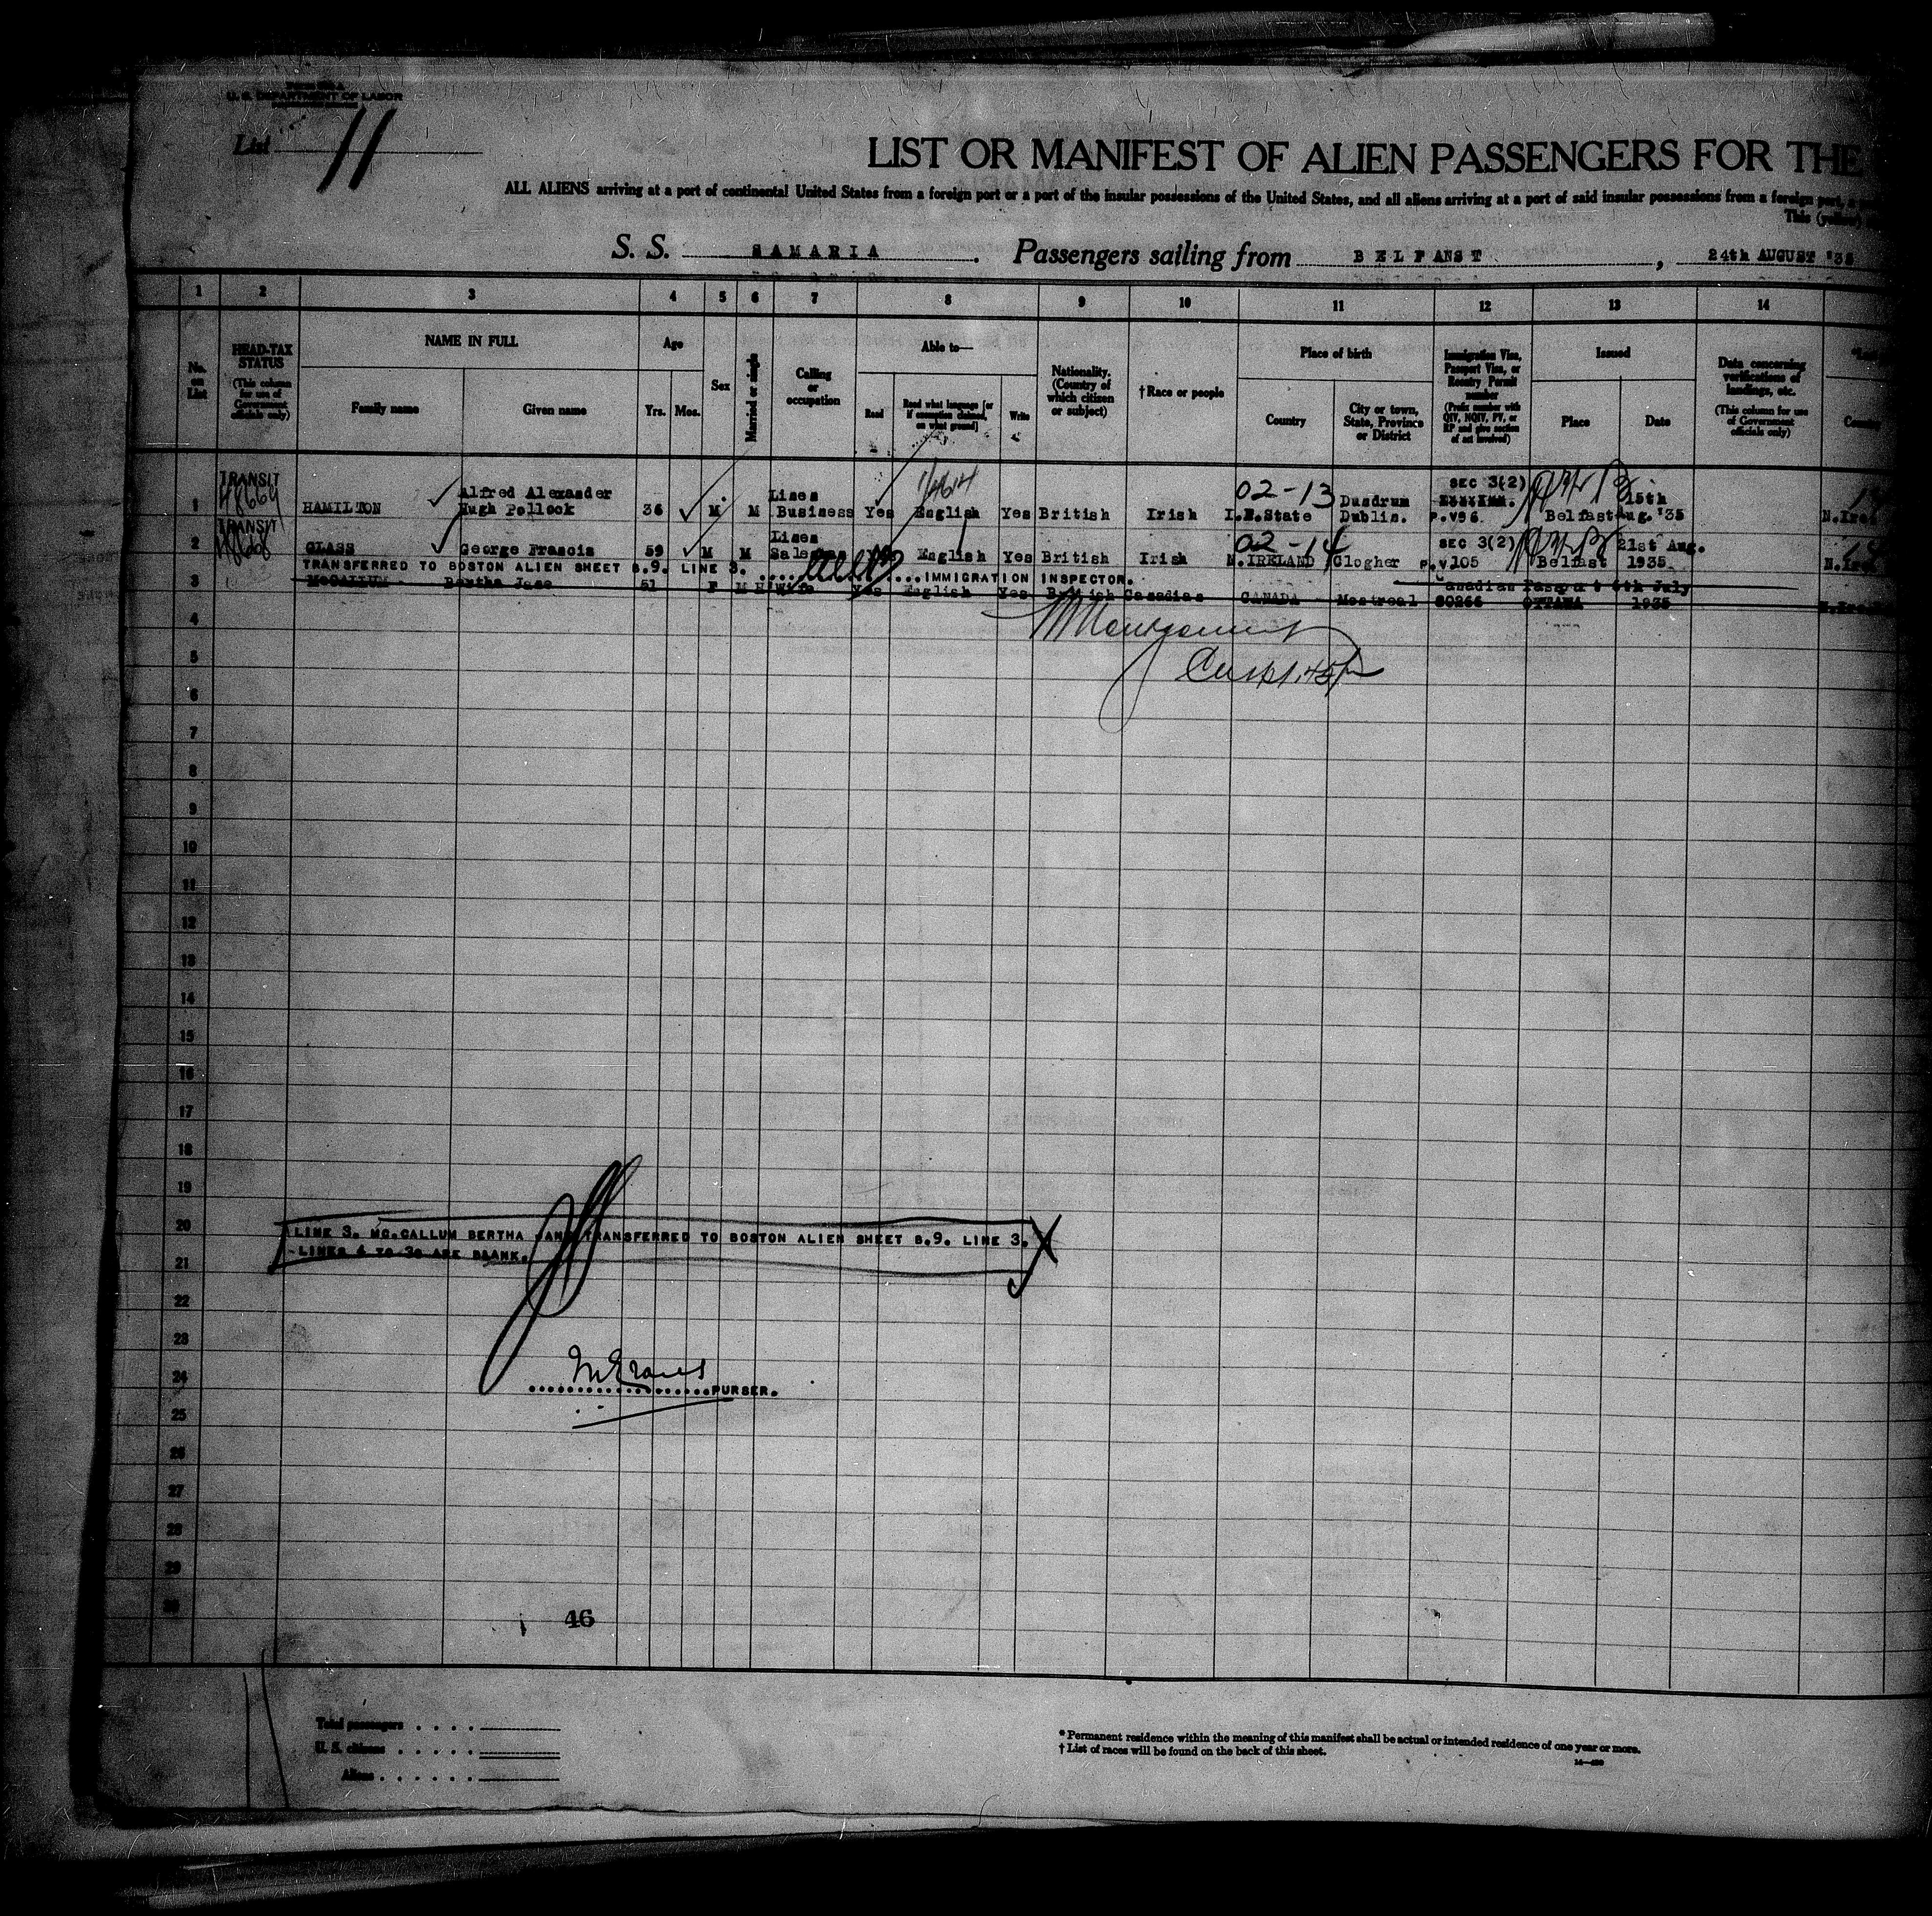 U. S. DEPARTMENT OF LABOR
List 11
LIST OR MANIFEST OF ALIEN PASSENGERS FOR THE
ALL ALIENS arriving at a port of continental United States from a foreign port or a port of the insular possessions of the United States, and all aliens arriving at a port of said insular possessions from a foreign port, a
This
S. S. SAMARIA . Passengers sailing from BELFANST , 24th AUGUST '35
1 2 3 4 5 6 7 8 9 10 11 12 13 14
No. on List
HEAD-TAX STATUS (This column for use of Government officials only)
NAME IN FULL
Family name
Given name
Age
Yrs. Mos.
Sex
Married or single
Calling or occupation
Able to—
Read
Read what language [or if exemption claimed, on what ground]
Write
Nationality. (Country of which citizen or subject)
†Race or people
Place of birth
Country
City or town, State, Province or District
Immigration Visa, Passport Visa, or Reentry Permit number
(Prefix number with QIV, NQIV, PV, or RP and give section of act involved)
Issued
Place
Date
Data concerning verifications of landings, etc.
(This column for use of Government officials only)
TRANSIT Alfred Alexander Linen 02-13 Dundrum SEC 3(2) 15th
1 HAMILTON Hugh Pollock 36 M M Business Yes English Yes British Irish I.F.State Dublin. P.V96. Belfast Aug.'35 N.Ire
TRANSIT Linen 02-14 SEC 3(2) 21st Aug.
2 GLASS George Francis 59 M M Salesman Yes English Yes British Irish N.IRELAND Clogher P.V105 Belfast 1935.
TRANSFERRED TO BOSTON ALIEN SHEET B.9. LINE 3. IMMIGRATION INSPECTOR.
Canadian Passport 6th July
3 McCALLUM Bertha Jane 51 F M H'Wife Yes English Yes British Canadian CANADA Montreal 80266 OTTAWA 1935
4
5
6
7
8
9
10
11
12
13
14
15
16
17
18
19
20
LINE 3. MC.CALLUM BERTHA JANE TRANSFERRED TO BOSTON ALIEN SHEET B.9. LINE 3.
LINES 4 TO 30 ARE BLANK.
21
22
23
24
PURSER.
25
26
27
28
29
30
46
Total passengers
U. S. citizens
Aliens
* Permanent residence within the meaning of this manifest shall be actual or intended residence of one year or more.
† List of races will be found on the back of this sheet.